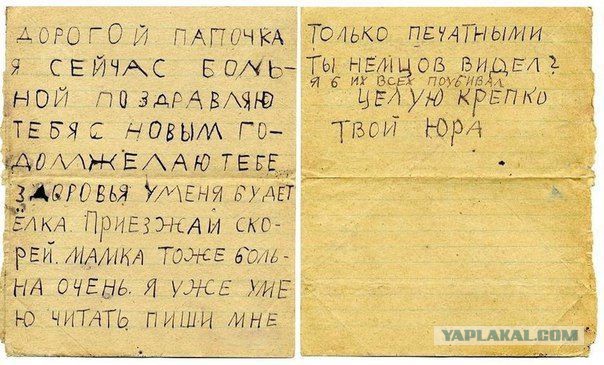 ДОРОГОЙ ПАПОЧКА
Я СЕЙЧАС БОЛЬ-
НОЙ ПОЗДРАВЛЯЮ
ТЕБЯ С НОВЫМ ГО-
ДОМ ЖЕЛАЮ ТЕБЕ
ЗДОРОВЬЯ У МЕНЯ БУДЕТ
ЁЛКА. ПРИЕЗЖАЙ СКО-
РЕЙ. МАМКА ТОЖЕ БОЛЬ-
НА ОЧЕНЬ. Я УЖЕ УМЕ
Ю ЧИТАТЬ ПИШИ МНЕ
ТОЛЬКО ПЕЧАТНЫМИ
ТЫ НЕМЦОВ ВИДЕЛ?
Я Б ИХ ВСЕХ ПОУБИВАЛ
ЦЕЛУЮ КРЕПКО
ТВОЙ ЮРА
YAPLAKAL.COM